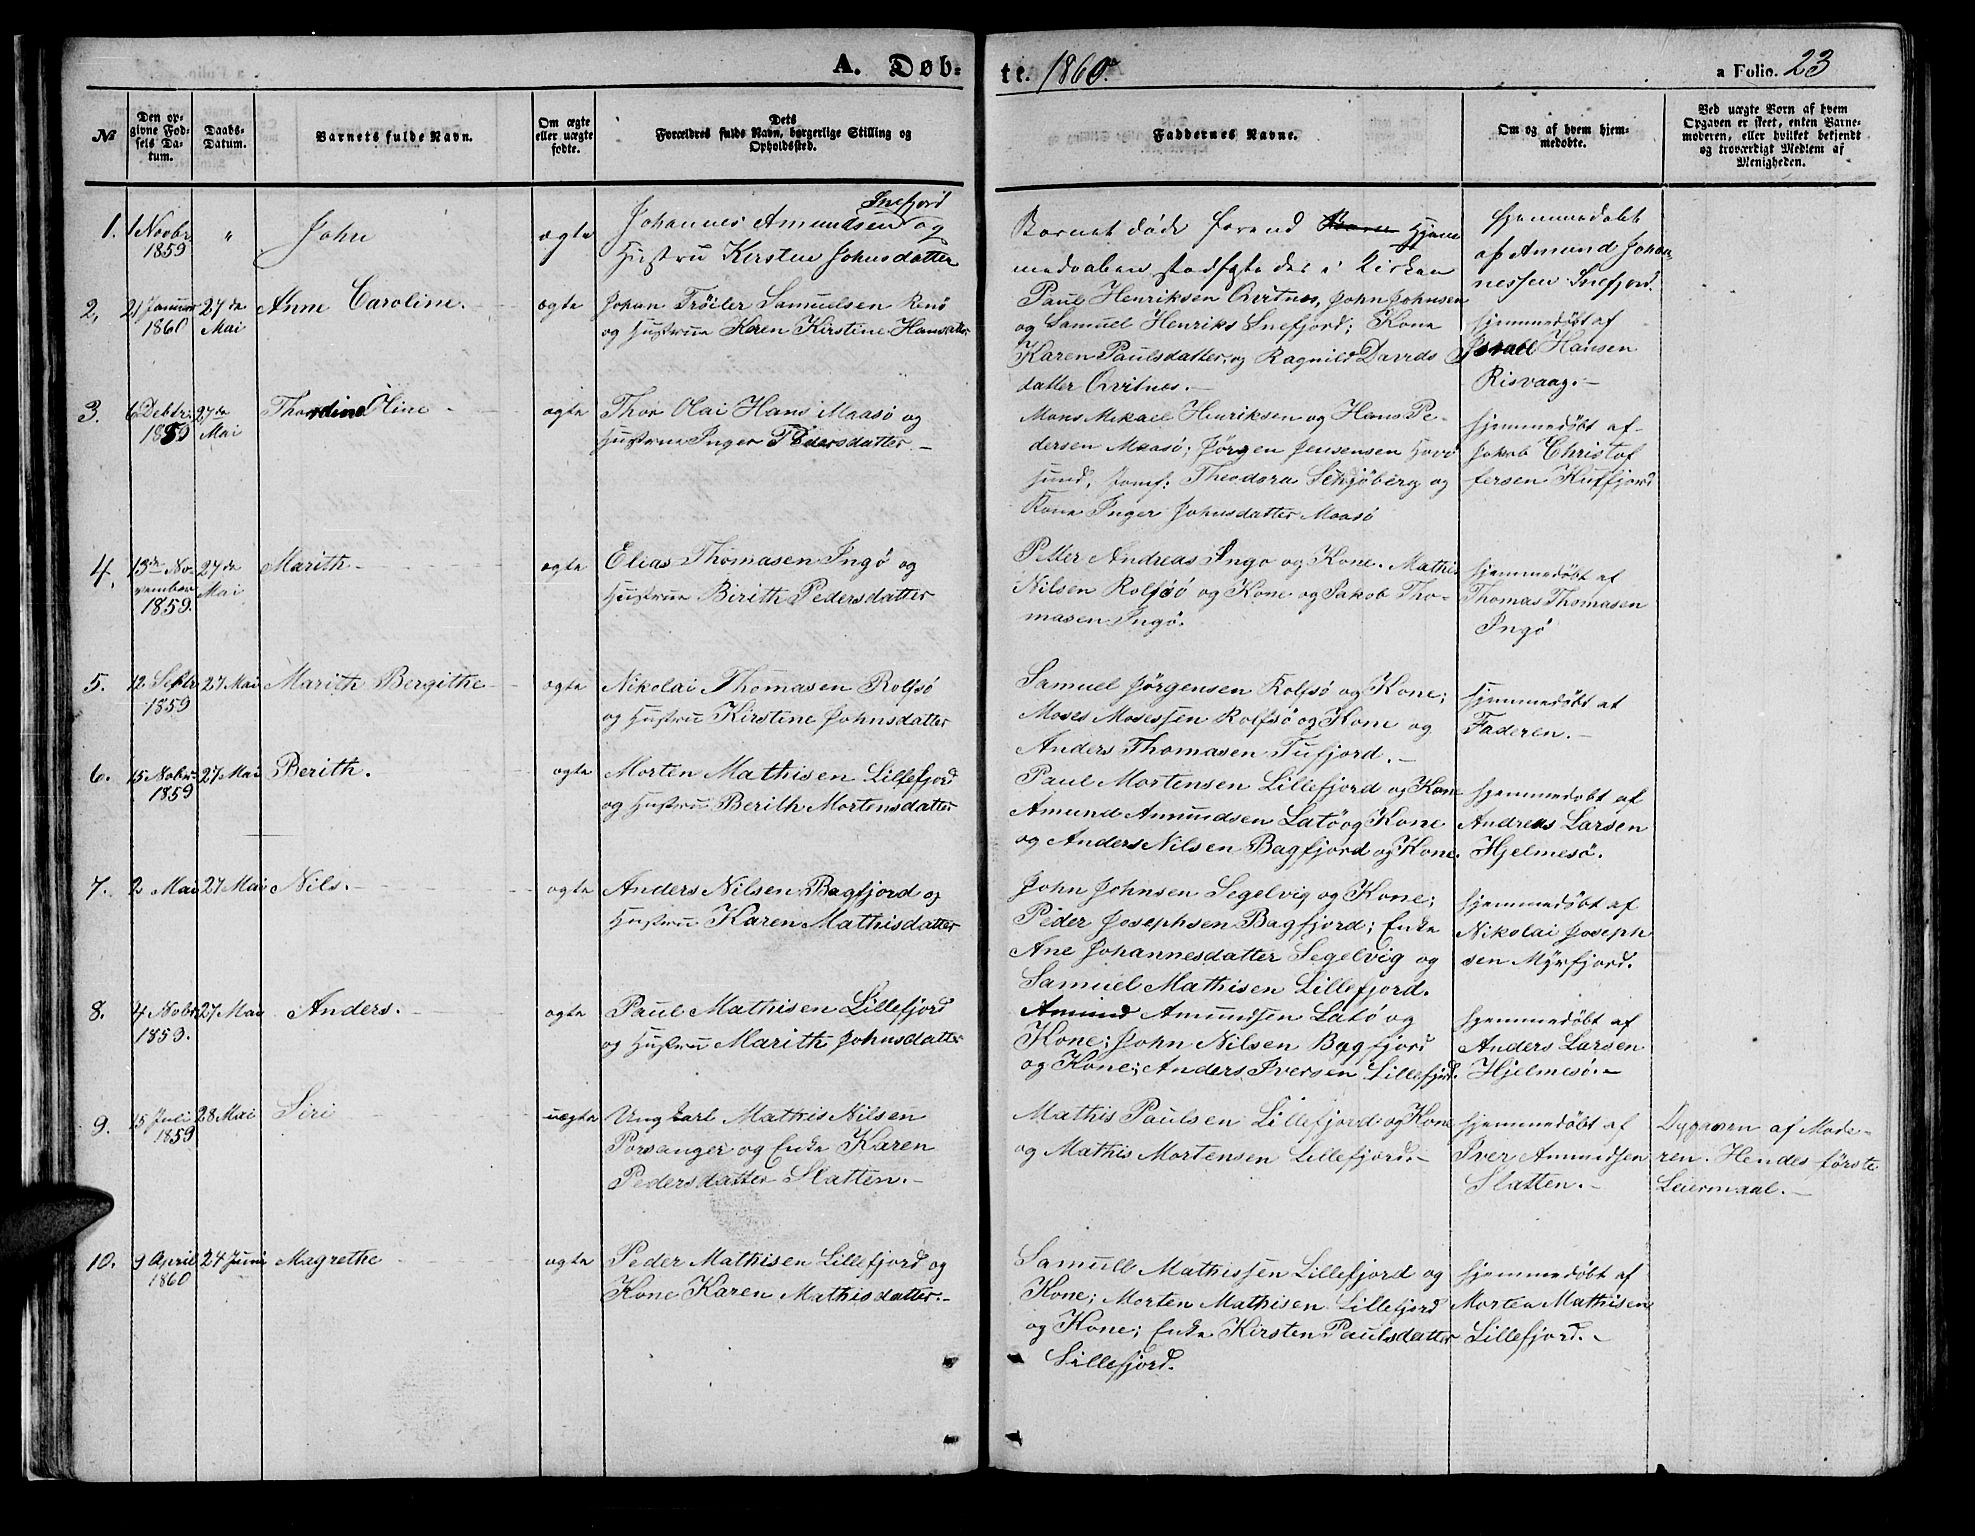 A. Døb-
te. 1860.
a Folio. 23
№
Den op-
givne Fød-
sels Da-
tum.
Daabs-
Datum.
Barnets fulde Navn.
Om ægte
eller uægte
fødte.
Dets
Forældres fulde Navn, borgerlige Stilling og
Opholdssted.
Faddernes Navne.
Om og af hvem hjem-
medøbte.
Ved uægte Born af hvem
Opgaven er skeet, enten Barne-
moderen, eller hvilket bekjendt
og troværdigt Medlem af
Menigheden.
1. 1 Novbr
1859
"
John
ægte
Snefjord
Johannes Amundsen og
Hustru Kirsten Johnsdatter
Barnet døde førend Hjem
medaaben stadfæstedes i Kirken
Hjemmedøbt
af Amund Johan-
nessen Snefjord.
2. 21 Januar
1860
27de
Mai
Anne Caroline.
ægte
Johan Trøiler Samuelsen Renø
og Hustrue Karen Kirstine Hansdatter
Paul Henriksen Qvitnes, John Johnsen
og Samuel Henriks Snefjord; Kone
Karen Paulsdatter, og Ragnild Davids
datter Qvitnes.-
hjemmedøbt af
Israel Hansen
Risvaag.-
3. 6 Debbr.
1859
27de
Mai
Thordine Oline
ægte
Thor Olai Hans Maasø og
Hustrue Inger Pedersdatter.-
Mons Mikael Henriksen og Hans Pe-
dersen Maasø; Jørgen Jensensen Havø
sund, Jomf: Theodora Schjøberg og
Kone Inger Johnsdatter Maasø
hjemmedøbt af
Jakob Christof
fersen Kulfjord
4. 13de No-
vember
1859.
27de
Mai
Marith
ægte
Elias Thomasen Ingø og
Hustrue Birith Pedersdatter
Petter Andreas Ingo og Kone. Mathis
Nilsen Rolfsø og Kone og Jakob Tho-
masen Ingø.
hjemmedøbt af
Thomas Thomasen
Ingø
5. 12. Septr.
1859
27 Mai
Marith Bergithe
ægte
Nikolai Thomasen Rolfsø
og Hustru Kirstine Johnsdatter
Samuel Jørgensen Rolfsø og Kone;
Moses Mosessen Rolfsø og Kone og
Anders Thomasen Tufjord.-
hjemmedøbt af
Faderen.-
6. 15 Nobr.
1859
27 Mai
Berith.
ægte
Morten Mathisen Lillefjord
og Hustru Berith Mortensdatter
Paul Mortensen Lillefjord og Kone
Amund Amundsen Latø og Kone
og Anders Nilsen Bagfjord og Kone.
hjemmedøbt af
Andreas Larsen
Hjelmesø.
7. 2 Mai
27 Mai
Nils.
ægte
Anders Nilsen Bagfjord og
Hustru Karen Mathisdatter
John Johnsen Segelvig og Kone;
Peder Josephsen Bagfjord; Enke
Ane Johannesdatter Segelvig og
Samuel Mathisen Lillefjord.
hjemmedøbt af
Nikolai Joseph
sen Myrfjord.
8. 4 Nobr.
1859.
27 Mai
Anders.
ægte
Paul Mathisen Lillefjord
og Hustru Marith Johnsdatter
Amund Amundsen Latø og
Kone; John Nilsen Bagfjord
og Kone; Anders Iversen Lillefjord.
hjemmedøbt af
Anders Larsen
Hjelmesø.-
9. 15 Juli
1859
28 Mai
Siri
uægte
Ungkarl Mathis Nilsen
Porsanger og Enke Karen
Pedersdatter Slatten.-
Mathis Paulsen Lillefjord og Kone
og Mathis Mortensen Lillefjord.-
hjemmedøbt af
Iver Amundsen
Slatten.-
Opgaven af Mode-
ren. Hendes første
Leiermaal.-
10. 9 April
1860
24 Juni
Magrethe
ægte
Peder Mathisen Lillefjord og
Kone Karen Mathisdatter.-
Samuell Mathissen Lillefjord og
Kone; Morten Mathisen Lillefjord
og Kone; Enke Kirsten Paulsdatter
Lillefjord.
hjemmedøbt af
Morten Mathisen
Lillefjord.-